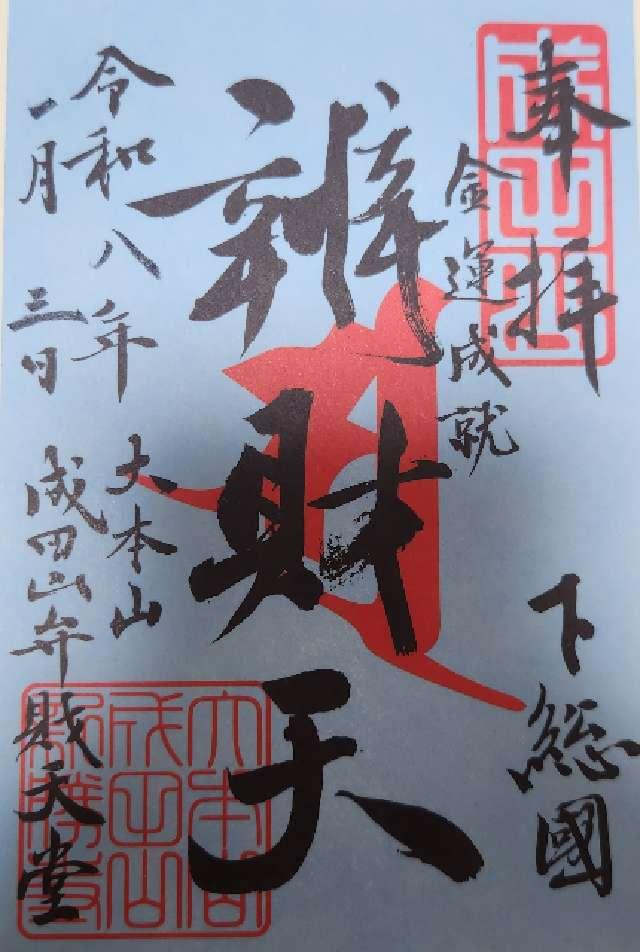 奉拝
下總國
金運成就
辨財天
令和八年
一月三日
大本山
成田山弁財天堂
成田山
大本山成田山新勝寺